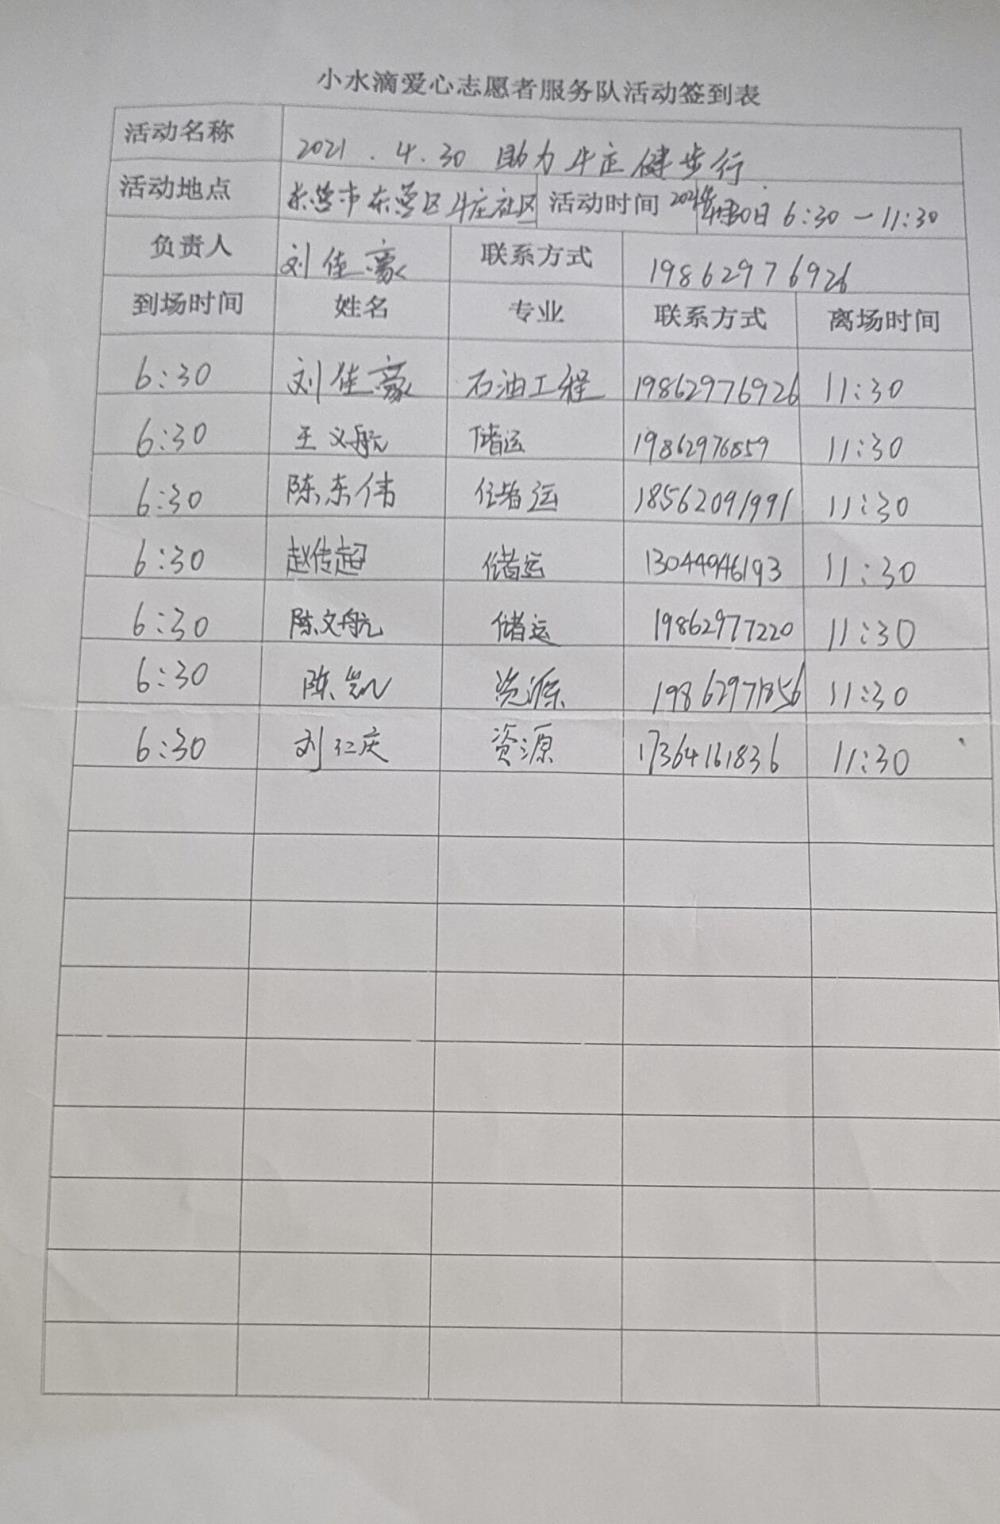 小水滴爱心志愿者服务队活动签到表
活动名称 2021.4.30 助力牛庄健步行
活动地点 东营市东营区牛庄社区 活动时间 2021年4月30日 6:30-11:30
负责人 刘佳豪 联系方式 19862976926
到场时间 姓名 专业 联系方式 离场时间
6:30 刘佳豪 石油工程 19862976926 11:30
6:30 王义航 储运 19862976859 11:30
6:30 陈东伟 储运 18562091991 11:30
6:30 赵传超 储运 13044946193 11:30
6:30 陈文航 储运 19862977220 11:30
6:30 陈凯 资源 11:30
6:30 刘仁庆 资源 17364161836 11:30